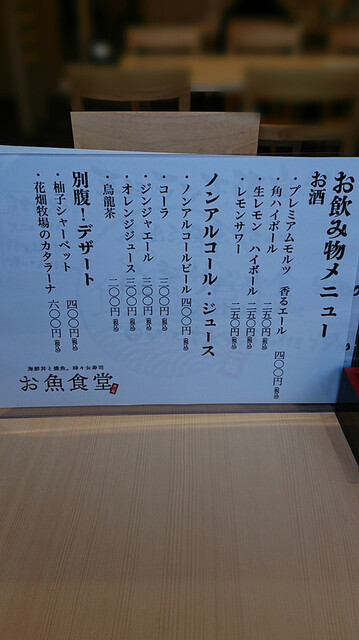 お飲み物メニュー
お酒
・プレミアムモルツ 香るエール 四〇〇円(税込)
・角ハイボール 二五〇円(税込)
・生レモン ハイボール 二五〇円(税込)
・レモンサワー 二五〇円(税込)
ノンアルコール・ジュース
・ノンアルコールビール 四〇〇円(税込)
・コーラ 二〇〇円(税込)
・ジンジャエール 二〇〇円(税込)
・オレンジジュース 二〇〇円(税込)
・烏龍茶 二〇〇円(税込)
別腹!デザート
・柚子シャーベット 四〇〇円(税込)
・花畑牧場のカタラーナ 六〇〇円(税込)
海鮮丼と焼魚。時々お寿司
お魚食堂